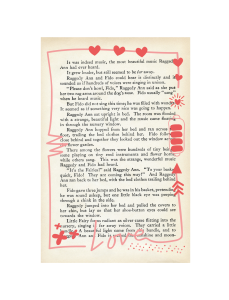 It was indeed music, the most beautiful music Raggedy
Ann had ever heard.
It grew louder, but still seemed to be far away.
Raggedy Ann and Fido could hear it distinctly and it
sounded as if hundreds of voices were singing in unison.
"Please don't howl, Fido," Raggedy Ann said as she put
her two rag arms around the dog's nose. Fido usually "sang"
when he heard music.
But Fido did not sing this time; he was filled with wonder.
It seemed as if something very nice was going to happen.
Raggedy Ann sat upright in bed. The room was flooded
with a strange, beautiful light and the music came floating
in through the nursery window.
Raggedy Ann hopped from her bed and ran across the
floor, trailing the bed clothes behind her. Fido followed
close behind and together they looked out the window
flower garden.
There among the flowers were hundreds of tiny beings,
some playing on tiny reed instruments and flower horns,
while others sang. This was the strange, wonderful music
Raggedy and Fido had heard.
"It's the Fairies!" said Raggedy Ann. "To your basket
quick, Fido! They are coming this way!" And Raggedy
Ann ran back to her bed, with the bed clothes trailing behind
her.
Fido gave three jumps and he was in his basket, pretending
he was sound asleep, but one little black eye was peeping
through a chink in the side.
Raggedy jumped into her bed and pulled the covers to
her chin, but lay so that her shoe-button eyes could see
towards the window.
Little Fairy forms radiant as silver came flitting into the
nursery, singing in far away voices. They carried a little
A beautiful light came from this bundle, and to
Ann and Fido
Love